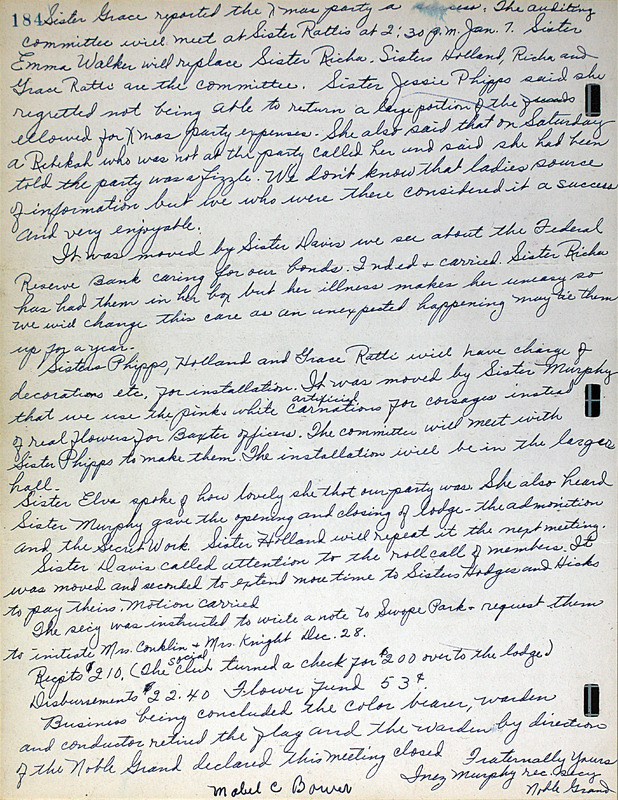 184 Sister Grace reported the Xmas party a success. The auditing
committee will meet at Sister Rattis at 2:30 p.m. Jan. 7. Sister
Emma Walker will replace Sister Richa. Sisters Holland, Richa and
Grace Ratti are the committee. Sister Jessie Phipps said she
regretted not being able to return a large portion of the funds
allowed for Xmas party expenses. She also said that on Saturday
a Rebekah who was not at the party called her and said she had been
told the party was a fizzle. We don't know that ladies source
of information but we who were there considered it a success
and very enjoyable.
It was moved by Sister Davis we see about the Federal
Reserve Bank caring for our bonds. 2nded + carried. Sister Richa
has had them in her box but her illness makes her uneasy so
we will change this care as an unexpected happening may tie them
up for a year.
Sisters Phipps, Holland and Grace Ratti will have charge of
decorations etc. for installation. It was moved by Sister Murphy
that we use the pink + white artificial carnations for corsages instead
of real flowers for Baxter officers. The committee will meet with
Sister Phipps to make them. The installation will be in the larger
hall.
Sister Elva spoke of how lovely she thot our party was. She also heard
Sister Murphy gave the opening and closing of lodge - the admonition
and the Secret Work. Sister Holland will repeat it the next meeting.
Sister Davis called attention to the roll call of members. It
was moved and seconded to extend more time to Sisters Hodges and Hicks
to pay theirs. Motion carried
The secy was instructed to write a note to Swope Park + request them
to initiate Mrs. Conklin + Mrs. Knight Dec. 28.
Recpts $210. (The social Club turned a check for $200 over to the lodge)
Disbursements $22.40 Flower Fund 53¢
Business being concluded the color bearer, warden
and conductor retired the flag and the warden by direction
of the Noble Grand declared this meeting closed Fraternally Yours
Inez Murphy rec. secy
Mabel C Bower Noble Grand